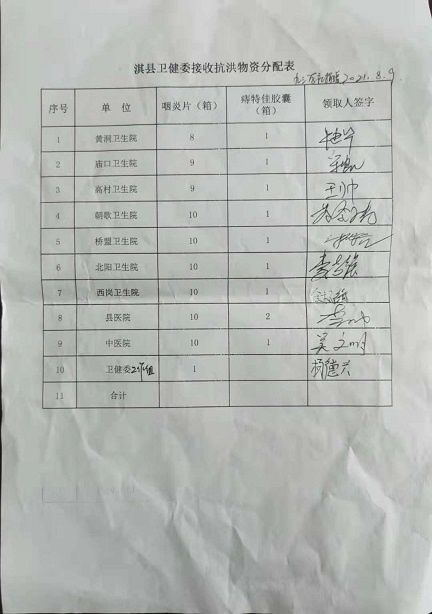 淇县卫健委接收抗洪物资分配表
2021.8.9
序号 单位 咽炎片（箱） 痔特佳胶囊（箱） 领取人签字
1 黄洞卫生院 8 1
2 庙口卫生院 9 1
3 高村卫生院 9 1 王帅
4 朝歌卫生院 10 1
5 桥盟卫生院 10 1
6 北阳卫生院 10 1
7 西岗卫生院 10 1
8 县医院 10 2
9 中医院 10 1 吴文明
10 卫健委工作组 1 杨德兴
11 合计